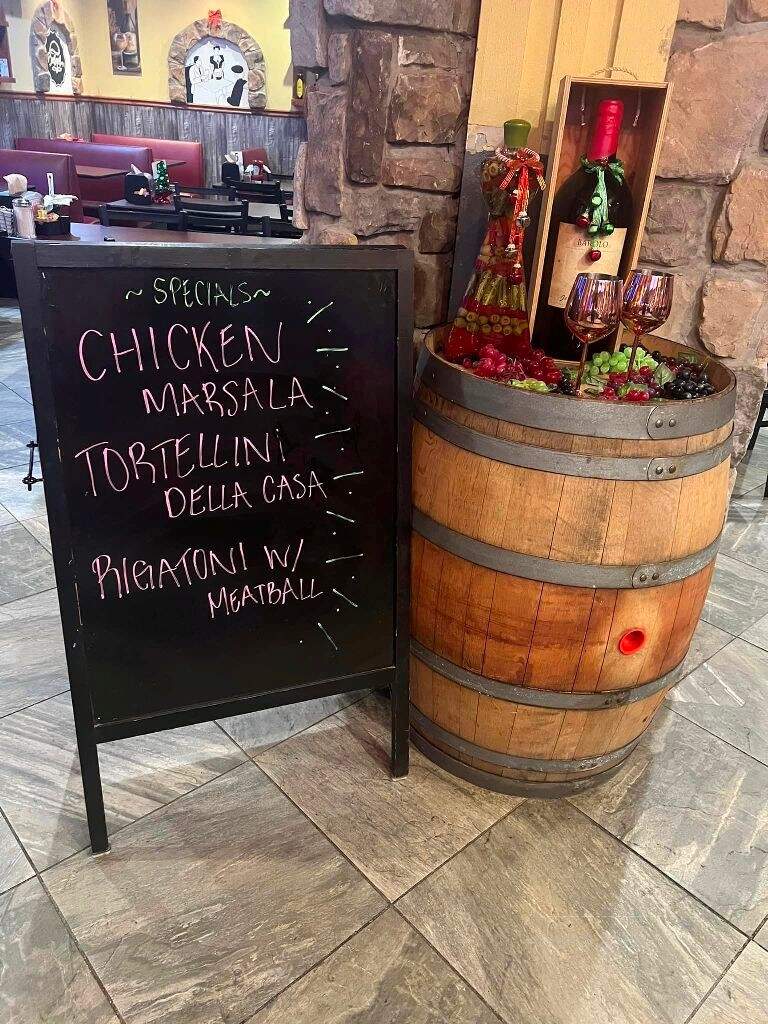 ~ SPECIALS ~
CHICKEN
MARSALA
TORTELLINI
DELLA CASA
RIGATONI W/
MEATBALL
BAROLO